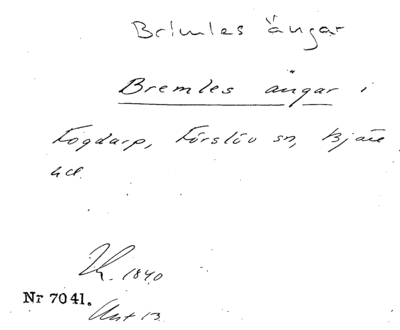 Brimles ängar
Bremles ängar i
Fogdarp, Förslöv sn, Bjäre
hd.
1840
Nr 7041.